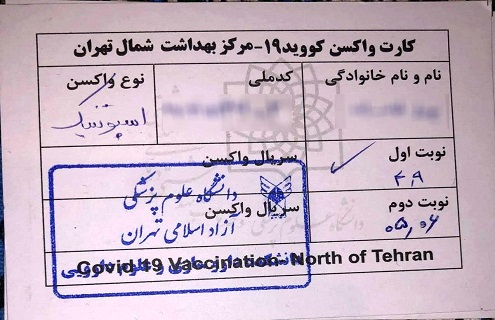 کارت واکسن کووید۱۹-مرکز بهداشت شمال تهران
نام و نام خانوادگی
کدملی
نوع واکسن
اسپوتنیک
نوبت اول
سریال واکسن
۴,۹
نوبت دوم
سریال واکسن
۰۵,۰۶
دانشگاه علوم پزشکی
آزاد اسلامی تهران
Covid 19 Vaccination- North of Tehran